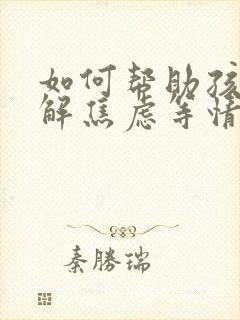 如何帮助孩
解焦虑等情
秦勝瑞